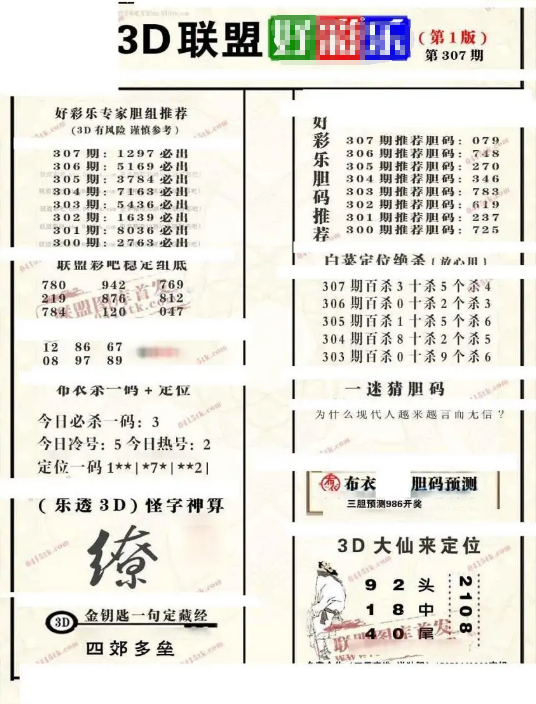 3D联盟好彩乐（第1版）
第307期
好彩乐专家胆组推荐
(3D有风险 谨慎参考)
307期: 1297必出
306期: 5169必出
305期: 3784必出
304期: 7163必出
303期: 5436必出
302期: 1639必出
301期: 8036必出
300期: 2763必出
联盟彩吧稳定组底
780 942 769
219 876 812
784 120 047
12 86 67
08 97 89
布衣杀一码+定位
今日必杀一码: 3
今日冷号: 5 今日热号: 2
定位一码 1**|*7*|**2|
(乐透3D)怪字神算
缭
3D 金钥匙一句定藏经
四郊多垒
好彩乐胆码推荐
307期推荐胆码: 079
306期推荐胆码: 748
305期推荐胆码: 270
304期推荐胆码: 346
303期推荐胆码: 783
302期推荐胆码: 619
301期推荐胆码: 237
300期推荐胆码: 725
白菜定位绝杀(放心用)
307期百杀3十杀5个杀4
306期百杀0十杀2个杀3
305期百杀1十杀5个杀6
304期百杀8十杀2个杀5
303期百杀0十杀9个杀6
一迷猜胆码
为什么现代人越来越言而无信?
布衣 胆码预测
三胆预测986开奖
3D大仙来定位
9 2头
1 8中
4 0尾
2108
联盟图库首发